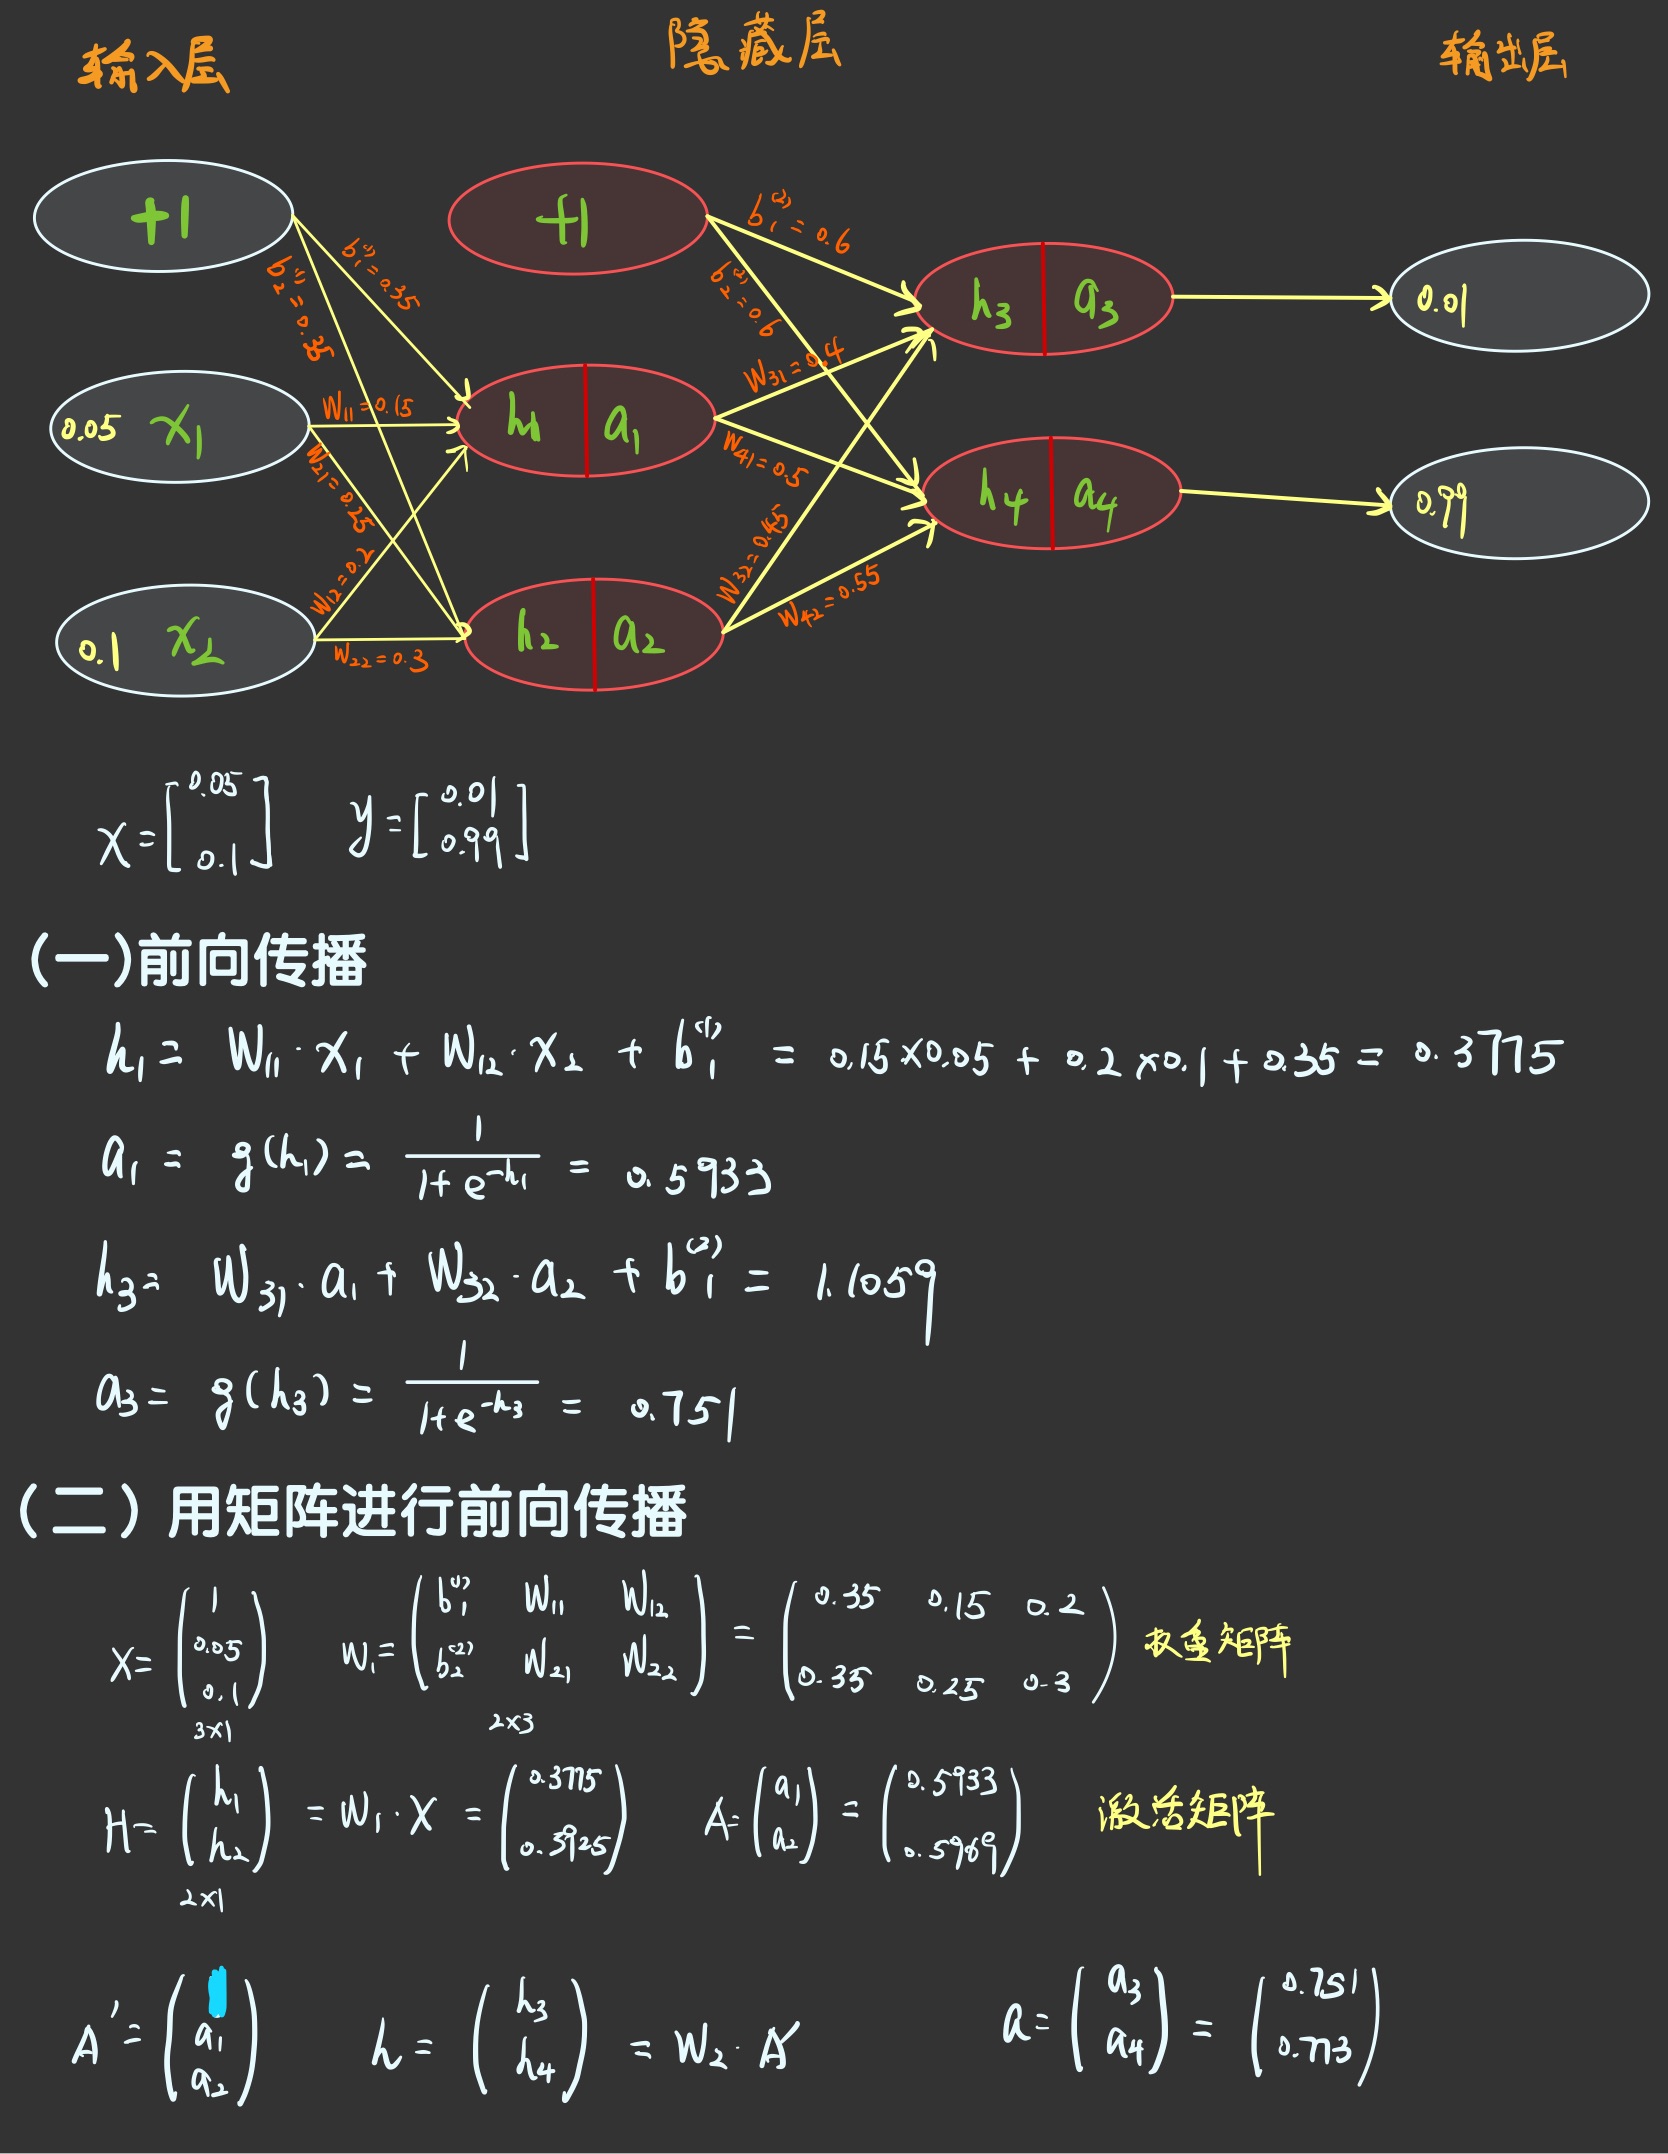 输入层 隐藏层 输出层
+1 +1
b₁⁽¹⁾=0.35
b₂⁽¹⁾=0.35
b₁⁽²⁾=0.6
b₂⁽²⁾=0.6
h₃ a₃ 0.01
W₃₁=0.4
0.05 x₁ W₁₁=0.15 h₁ a₁
W₂₁=0.25
W₄₁=0.5
h₄ a₄ 0.99
W₁₂=0.2
W₃₂=0.45
W₄₂=0.55
0.1 x₂ W₂₂=0.3 h₂ a₂
X=[0.05
0.1] y=[0.01
0.99]
(一)前向传播
h₁= W₁₁·X₁+W₁₂·X₂+b₁⁽¹⁾ = 0.15×0.05+0.2×0.1+0.35=0.3775
a₁= g(h₁)= 1/(1+e^-h₁) = 0.5933
h₃= W₃₁·a₁+W₃₂·a₂+b₁⁽²⁾= 1.1059
a₃= g(h₃)= 1/(1+e^-h₃) = 0.751
(二)用矩阵进行前向传播
X=(1
0.05
0.1) 3×1
W₁=(b₁⁽¹⁾ W₁₁ W₁₂
b₂⁽²⁾ W₂₁ W₂₂) 2×3
=(0.35 0.15 0.2
0.35 0.25 0.3) 权重矩阵
H=(h₁
h₂) 2×1 =W₁·X=(0.3775
0.3925)
A=(a₁
a₂)=(0.5933
0.5969) 激活矩阵
A'=(1
a₁
a₂)
h=(h₃
h₄)=W₂·A'
a=(a₃
a₄)=(0.751
0.773)